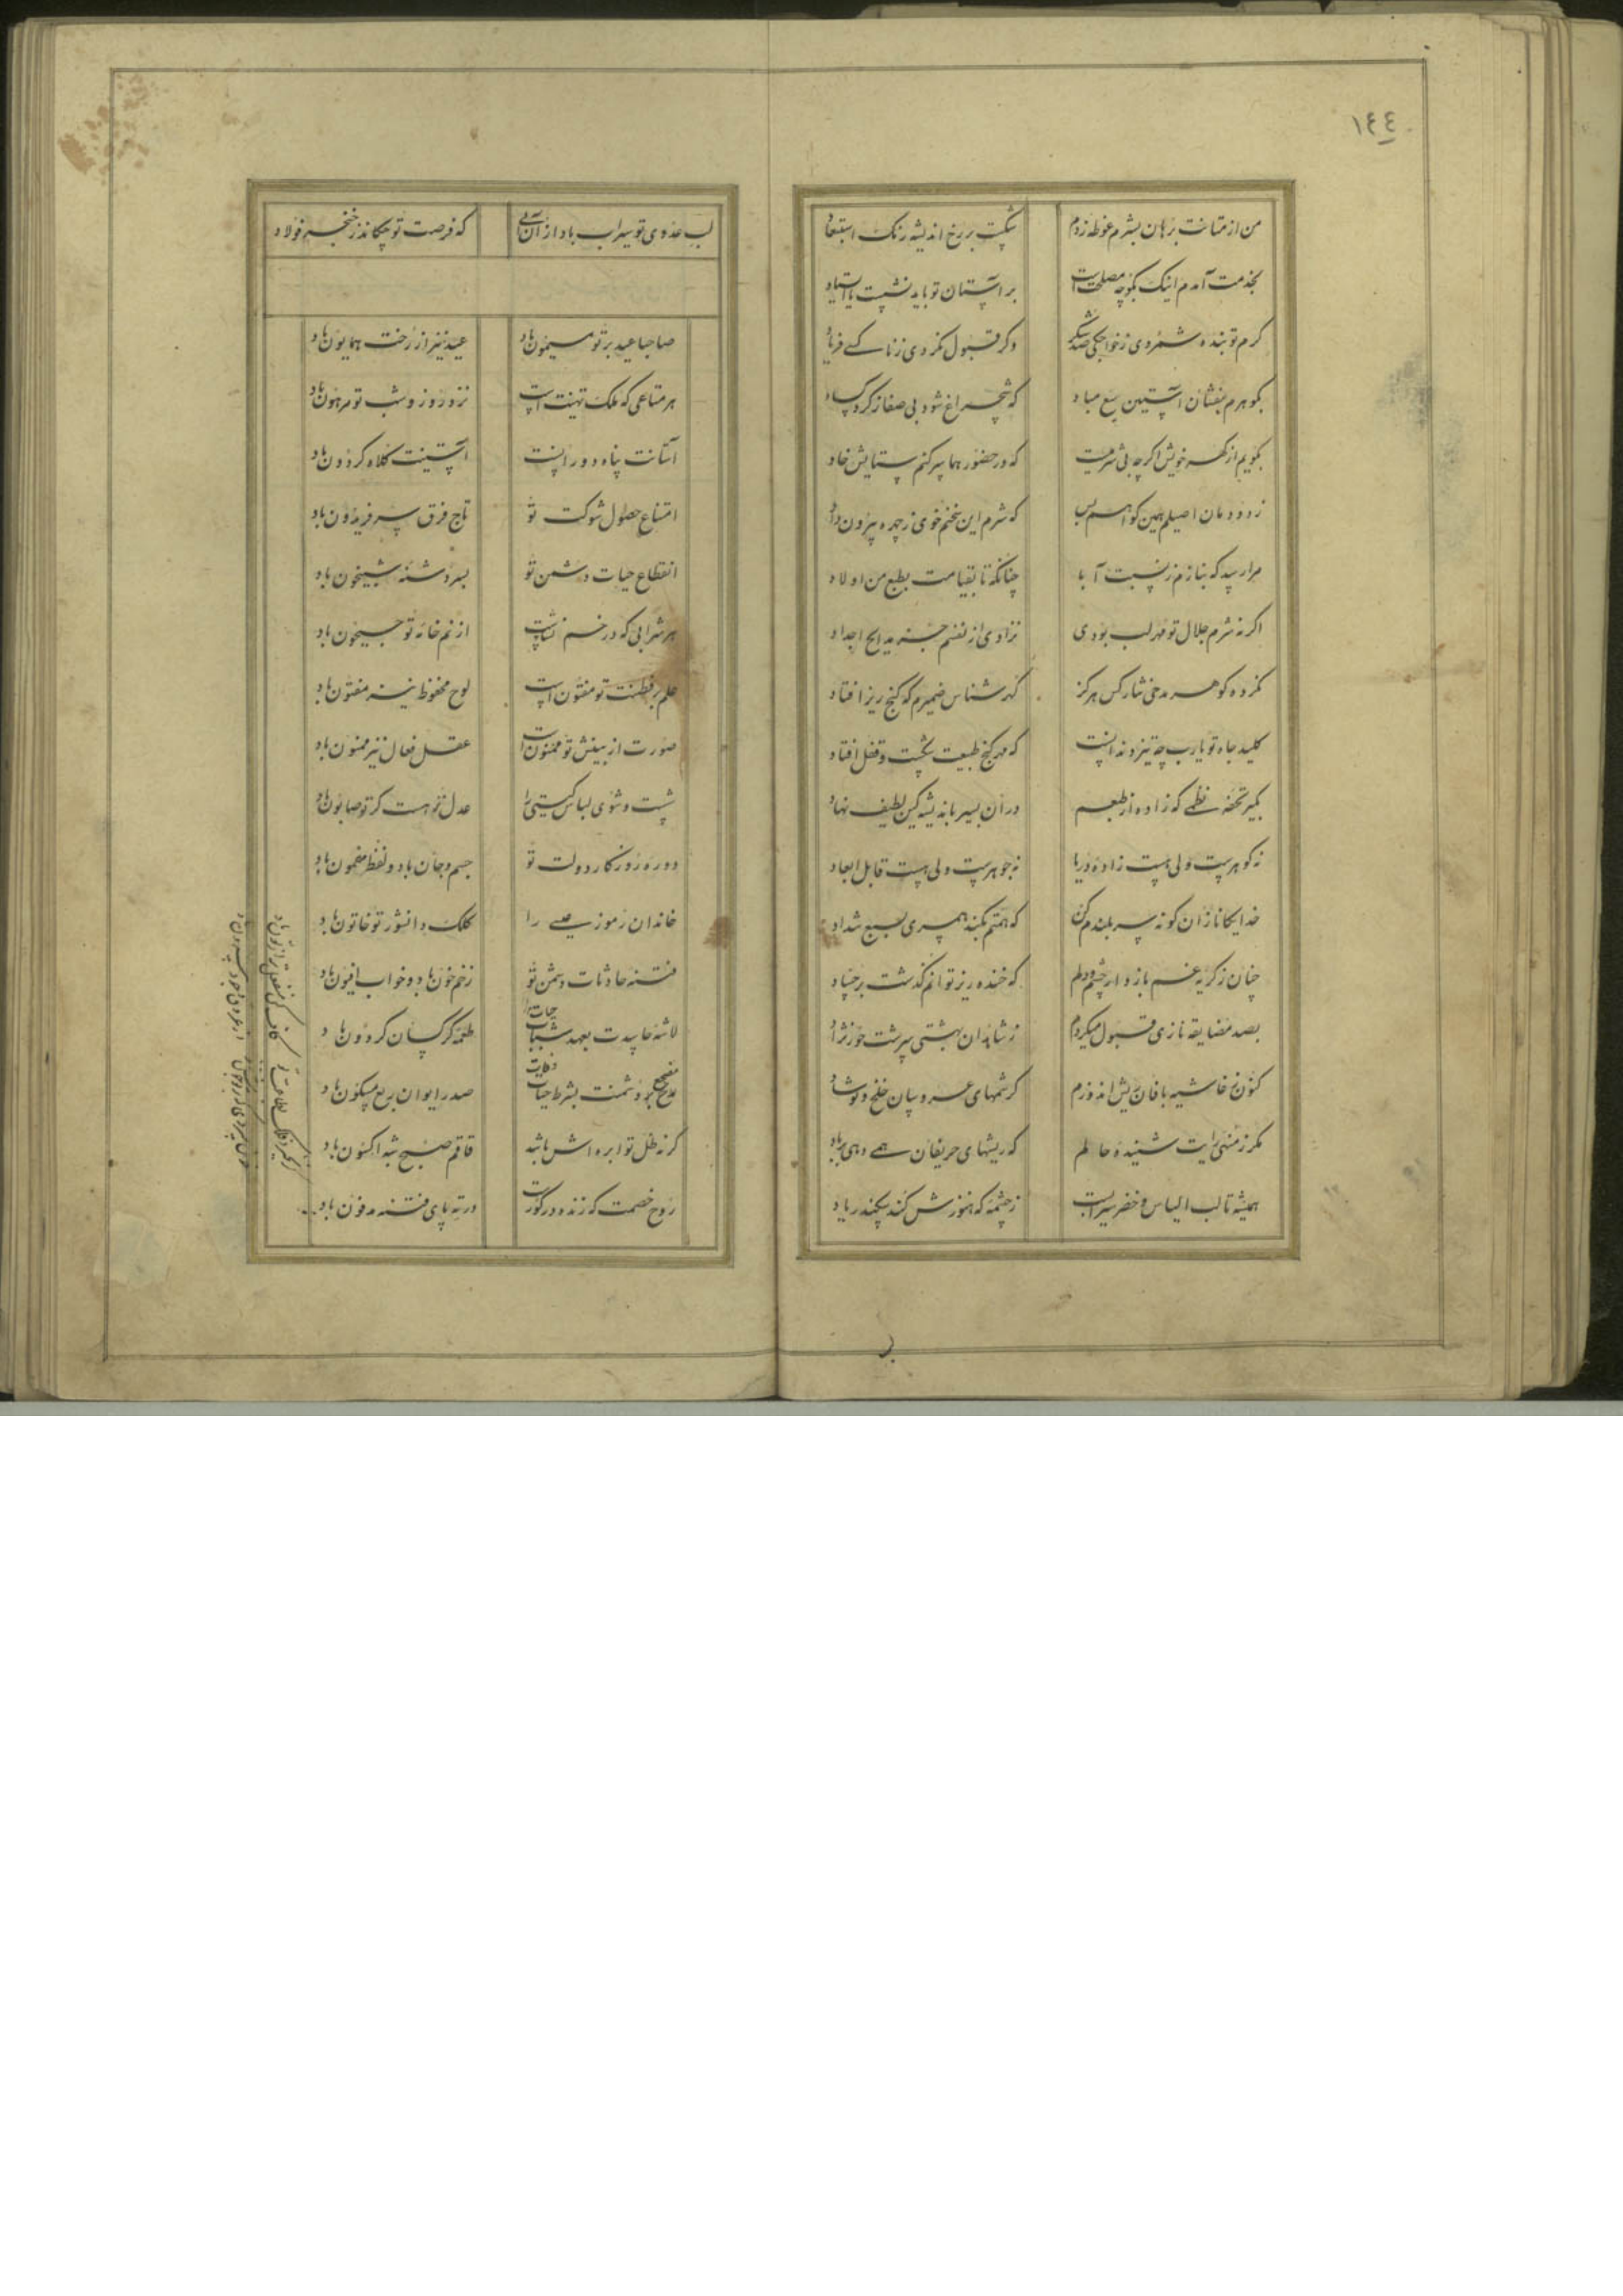 ١٤٤
من از متانت برهان بشرم غوطه زدم شکست بر رخ اندیشه رنک استبعاد
بخدمت آمدم اینک بکو چه مصلحت است بر آستان تو باید نشست یا استاد
کرم تو بنده شمردی ز خواجکی صد شکر وکر قبول نکردی ز ناکسی فریاد
بکوهرم بفشان آستین مباد که شبچراغ شود بی صفا ز کرد کساد
بکویم از کهر خویش اکرچه بی شرمیست که در حضور هما سر کنم ستایش خاد
ز دودمان اصیلم همین کواهم بس که شرم این سخنم خوی ز چهره بیرون داد
مرا رسد که بنازم ز نسبت آبا چنانکه تا بقیامت بطبع من اولاد
اکر نه شرم جلال تو مهر لب بودی نزادی از نفسم جز مدایح اجداد
نکرده کوهر مدحی نثار کس هرکز کهر شناس ضمیرم که کنج ریز افتاد
کلید جاه تو یارب چه تیز دندانست که مهر کنج طبیعت شکست و قفل افتاد
بکیر تحفه نظمی که زاده از طبعم در آن بسیر باندیشه کین لطیف نهاد
نه کوهرست ولی هست زاده دریا نه جوهرست ولی هست قابل ابعاد
خدایکانا زان کونه سر بلندم کن که همتم نکند همسری بسبع شداد
چنان ز کریه غم باز دار چشم دلم که خنده ریز توانم کذشت بر حساد
بصد مضایقه نازی قبول میکردم ز شاهدان بهشتی سرشت حور نژاد
کنون خاشیه بافان ریش اندوزم کرشمهای عروسان خلخ و نوشاد
مکر ز منهی رایت شنیده حالم که ریشهای حریفان همی دهی بر باد
همیشه تا لب الیاس و خضر سیرابست ز چشمه که هنوزش سکندر یاد
لب عدوی تو سیراب باد از آن آبی که فرصت تو چکاند ز خنجر فولاد
صاحبا عید بر تو میمون باد عید نیز از رخت همایون باد
هر متاعی که ملک تهنیت است نزد روز و شب تو مرهون باد
آستانت پناه دورانست آستینت کلاه کردون باد
امتناع حصول شوکت تو تاج فرق سر فریدون باد
انقطاع حیات دشمن تو بسر دشنه شبیخون باد
هر شرابی که در خم انشاست از نم خانه تو جیحون باد
علم بر فطنت تو مفتون است لوح محفوظ نیز مفتون باد
صورت از بینش تو ممنون است عقل فعال نیز ممنون باد
شست و شوی لباس کیتی را عدل نزهت کر تو صابون باد
دوره روزکار دولت تو جسم و جان باد و لفظ مضمون باد
خاندان رموز عیسی را کلک دانشور تو خاتون باد
فتنه حادثات دشمن تو زخم خون باد و خواب افیون باد
لاشه حاسدت بعهد شباب حیات طعمه کرکسان کردون باد
بر دشمنت بشرط حیات وفات صدر ایوان ربع مسکون باد
کر نه ظل تو ابره اش باشد قاقم صبح شب اکسون باد
روح خصمت که زنده در کورست در ته پای فتنه مدفون باد